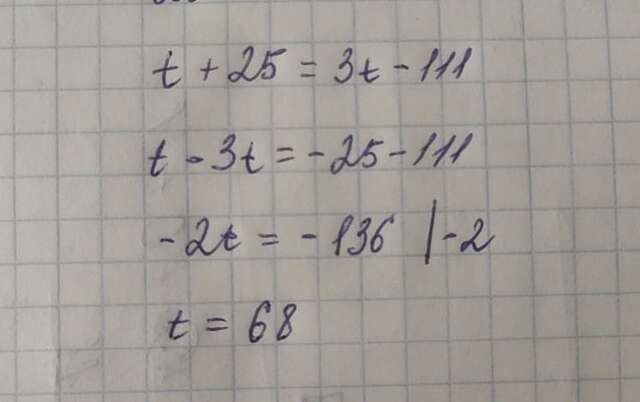 t + 25 = 3t - 111
t - 3t = - 25 - 111
- 2t = - 136 | - 2
t = 68